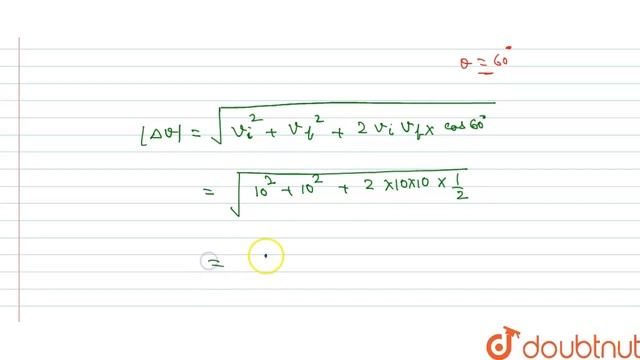 θ = 60°
|Δv| = √(vᵢ² + v_f² + 2 vᵢ v_f × cos 60°)
= √(10² + 10² + 2 × 10 × 10 × 1/2)
=
doubtnut